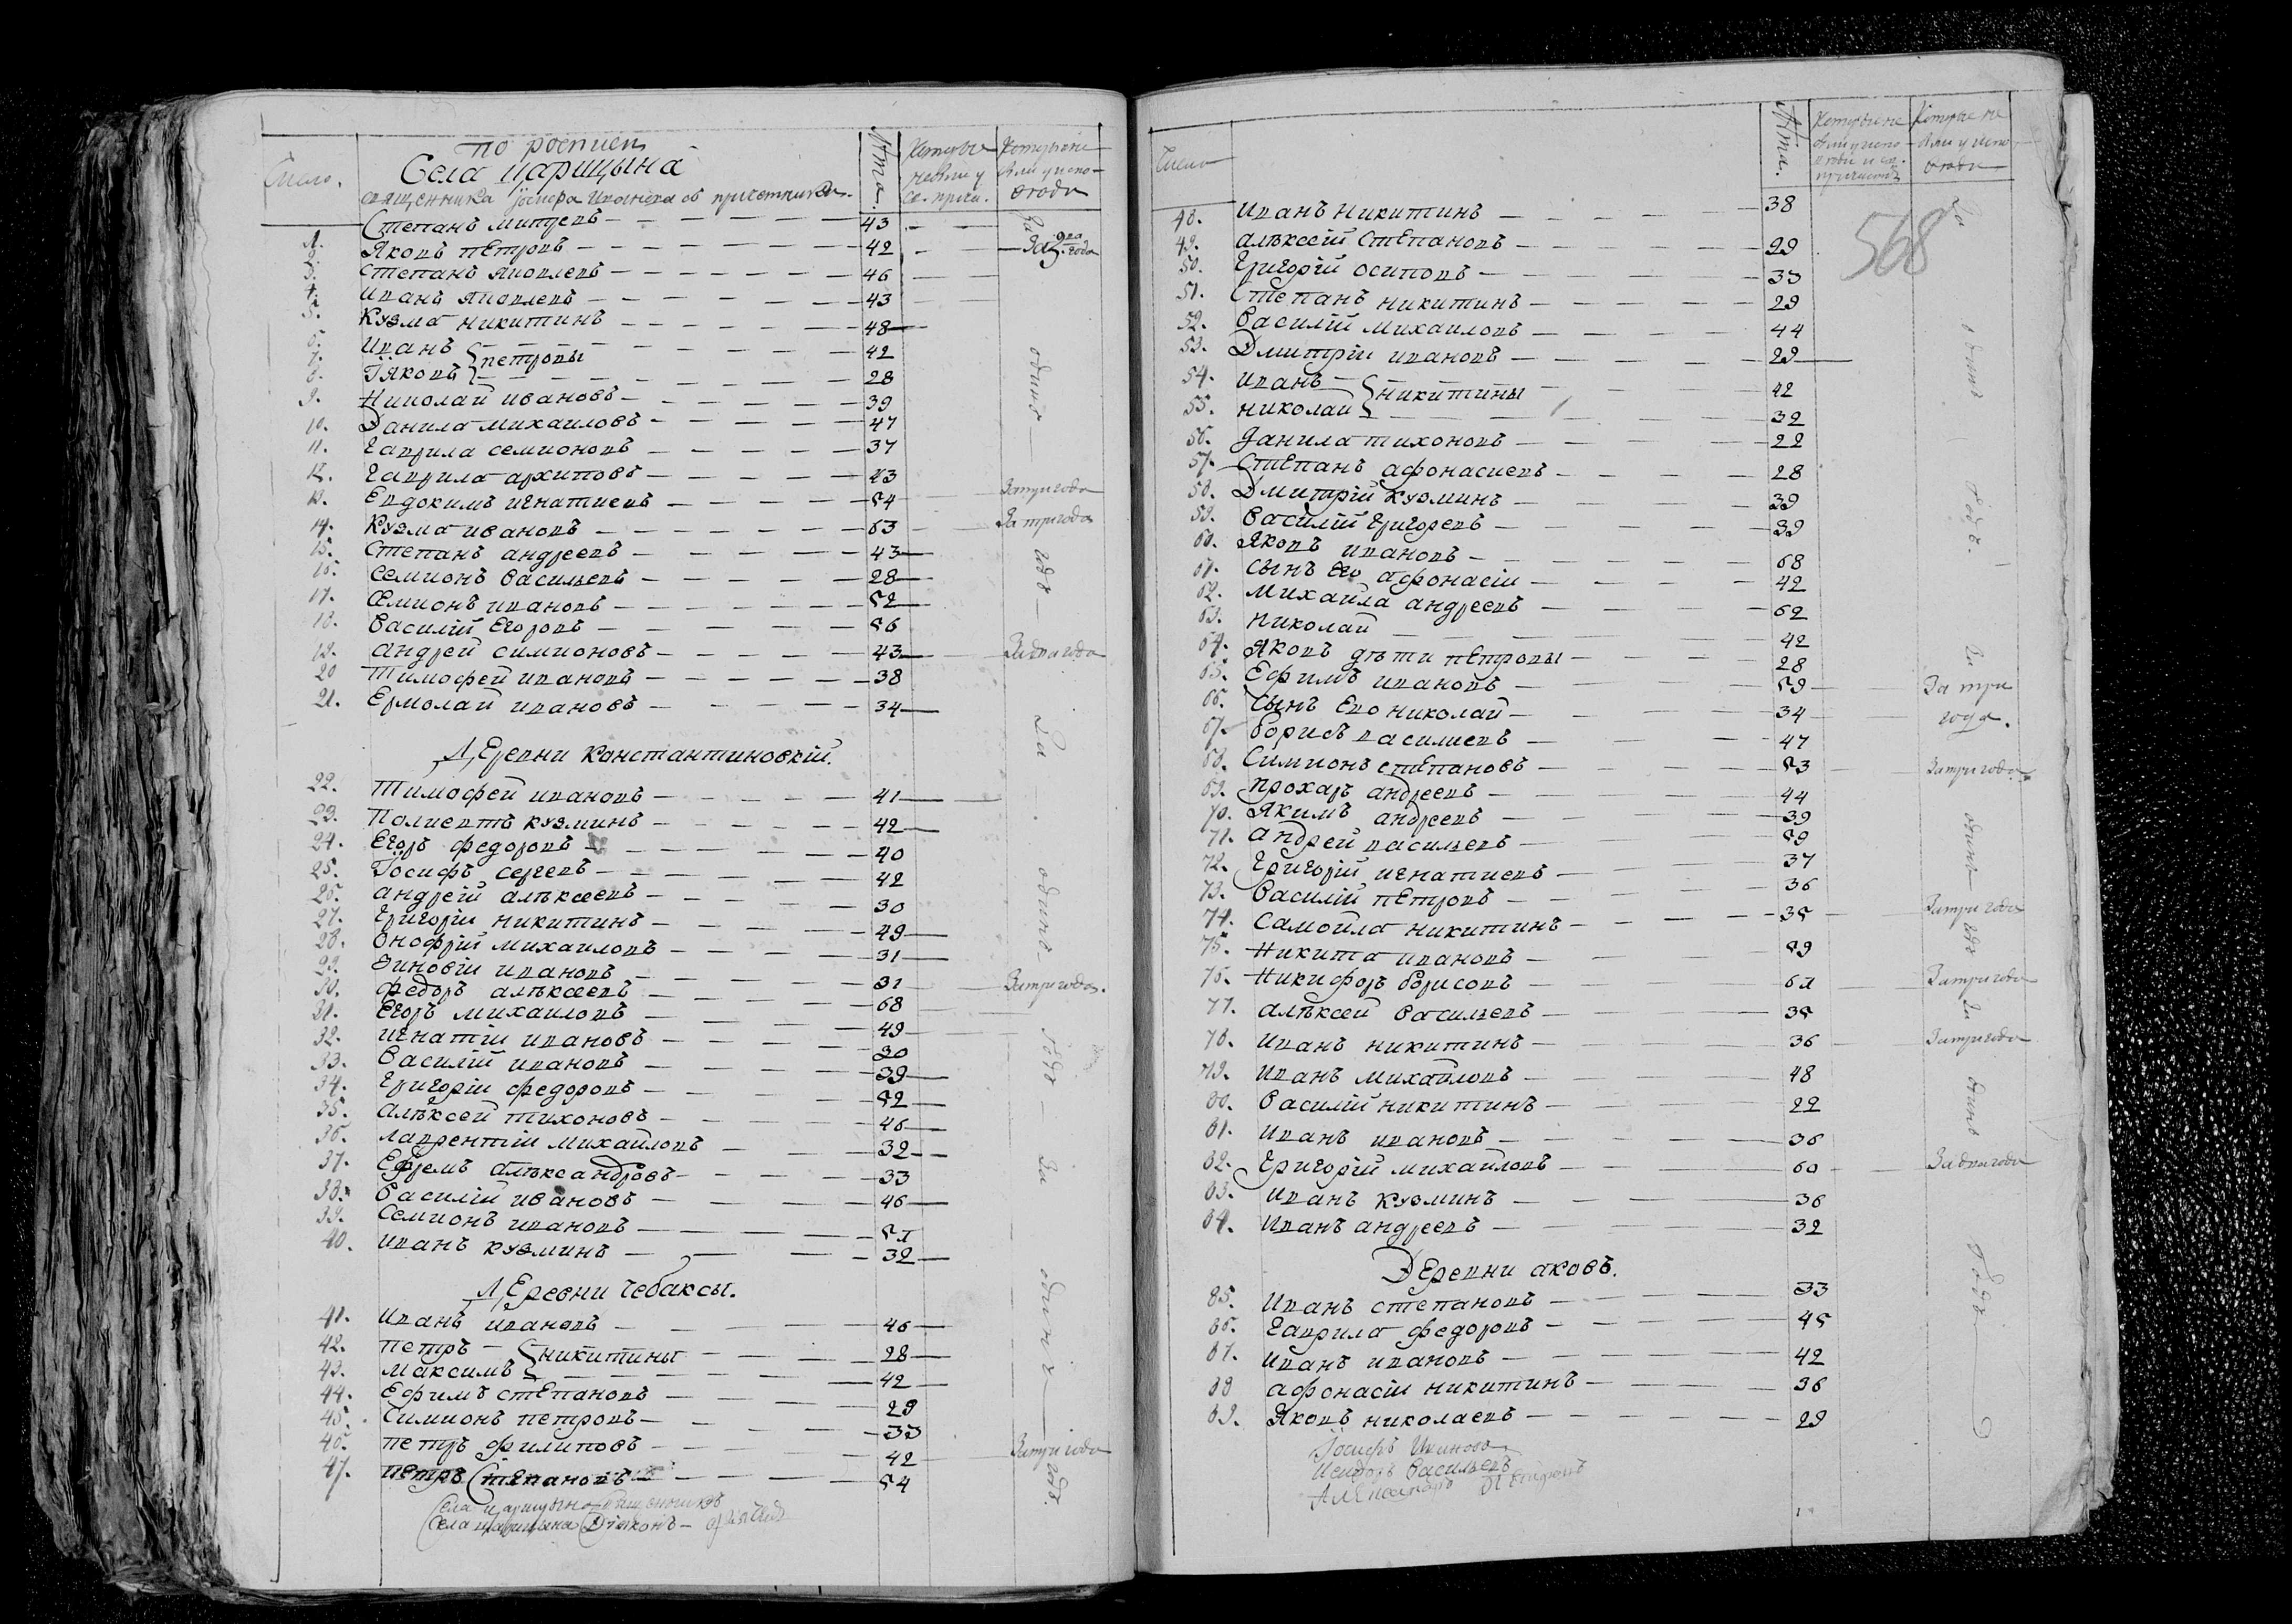 Число.
по росписи
Села Царицына
священника Іосифа Иванова об причетниками
Лѣта.
Которые небыли у св. прич.
Которые не были у исповеди
1. Степанъ Митреевъ 43
2. Яковъ Петровъ 42 За 2 года
3. Степанъ Яковлевъ 46
4. Иванъ Яковлевъ 43
5. Кузма Никитинъ 48
6. Иванъ 42
7. Петровы
8. Яковъ 28
9. Николай Ивановъ 39
10. Данила Михаиловъ 47
11. Гаврила Семионовъ 37
12. Гаврила Архиповъ 23
13. Евдокимъ Игнатиевъ 54 За три года
14. Кузма Ивановъ 63 За три года
15. Степанъ Андреевъ 43
16. Семионъ Васильевъ 28
17. Семионъ Ивановъ 52
18. Василій Егоровъ 56
19. Андрей Симионовъ 43 За два года
20. Тимофей Ивановъ 38
21. Ермолай Ивановъ 34
Деревни Константиновкій.
22. Тимофей Ивановъ 41
23. Полиектъ Кузминъ 42
24. Егоръ Федоровъ 40
25. Іосифъ Сергевъ 42
26. Андрей Алѣксеевъ 30
27. Григоріи Никитинъ 49
28. Онофрій Михаиловъ 31
29. Зиновіи Ивановъ 31 За три года.
30. Федоръ Алѣксеевъ 68
31. Егоръ Михаиловъ 49
32. Игнатіи Ивановъ 30
33. Василій Ивановъ 39
34. Григоріи Федоровъ 52
35. Алѣксей Тихоновъ 46
36. Лаврентіи Михайловъ 32
37. Ефремъ Алѣксандровъ 33
38. Василій Ивановъ 46
39. Семионъ Ивановъ
40. Иванъ Кузминъ 32
Деревни Чебаксы.
41. Иванъ Ивановъ 46
42. Петръ 28
Никитины
43. Максимъ 42
44. Ефимъ Степановъ 29
45. Симионъ Петровъ 33
46. Петръ Филиповъ 42 За три года
47. Петръ Степановъ 54
За одинъ годъ За одинъ годъ За одинъ годъ
Села Царицына Священникъ
Села Царицына Діаконъ
Число
Лѣта.
Которые не были у исповеди и св. причастія
Которые не были у исповеди
568
48. Иванъ Никитинъ 38
49. Алѣксей Степановъ 29
50. Григорій Осиповъ 33
51. Степанъ Никитинъ 29
52. Василій Михаиловъ 44
53. Дмитріи Ивановъ 29
54. Иванъ 42
Никитины
55. Николай 32
56. Данила Тихоновъ 22
57. Степанъ Афонасиевъ 28
58. Дмитрій Кузминъ 39
59. Василій Григоревъ 39
60. Яковъ Ивановъ 68
61. Сынъ Его Афонасіи 42
62. Михайла Андреевъ 62
63. Николай 42
64. Яковъ дѣти Петровы 28
65. Ефимъ Ивановъ 59 За три
66. Сынъ Ево Николай 34 года.
67. Борисъ Василиевъ 47
68. Симионъ Степановъ 53 За три года
69. Прохаръ Андреевъ 44
70. Якимъ Андреевъ 39
71. Андрей Васильевъ 59
72. Григорій Игнатиевъ 37
73. Василій Петровъ 36
74. Самойла Никитинъ 35 За три года
75. Никита Ивановъ 59
76. Никифоръ Борисовъ За три года
77. Алѣксей Васильевъ 35
78. Иванъ Никитинъ 36 За три года
79. Иванъ Михайловъ 48
80. Василій Никитинъ 22
81. Иванъ Ивановъ 36
82. Григорій Михайловъ 60 За два года
83. Иванъ Кузминъ 36
84. Иванъ Андреевъ 32
Деревни Аковъ.
85. Иванъ Степановъ 33
86. Гаврила Федоровъ 45
87. Иванъ Ивановъ 42
88. Афонасіи Никитинъ 36
89. Яковъ Николаевъ 29
За одинъ Годъ. За одинъ годъ За одинъ Годъ
Іосифъ Ивановъ
Исидоръ Васильевъ
Александръ